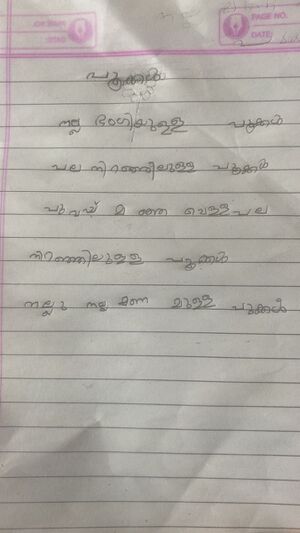 PAGE NO.
DATE:
പൂക്കൾ
നല്ല ഭംഗിയുള്ള പൂക്കൾ
പല നിറത്തിലുള്ള പൂക്കൾ
മഞ്ഞ വെള്ള പല
നിറത്തിലുള്ള പൂക്കൾ
നല്ല മണ മുള്ള പൂക്കൾ